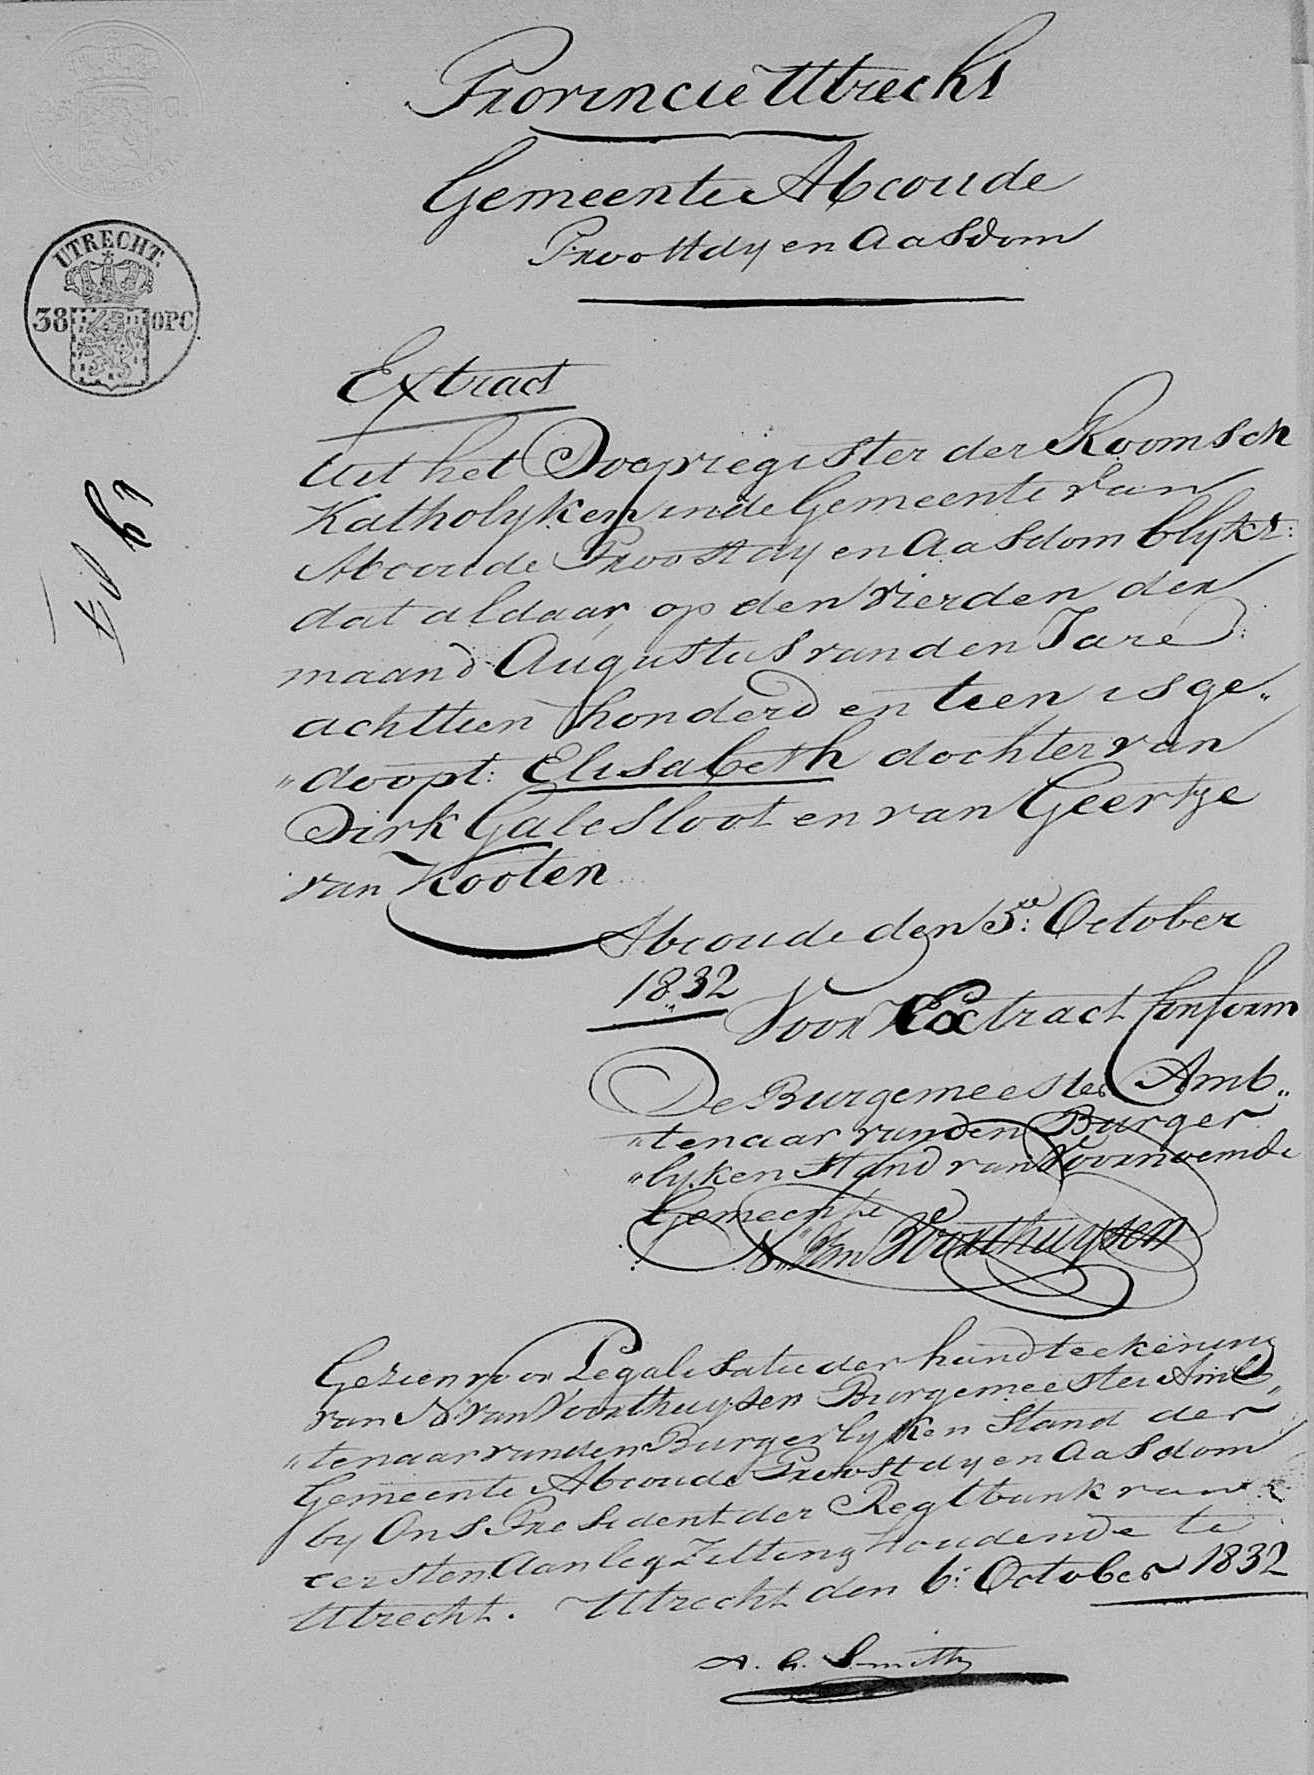 Provincie Utrecht
Gemeente Abcoude
Proostdy en Aasdom
UTRECHT.
38 OPC
Extract
Uit het Doopregister der Roomsch
Katholyken in de Gemeente van
Abcoude Proostdy en Aasdom blykt:
dat aldaar op den vierden der
maand Augustus van den Jare
achttien honderd en tien is ge„
„doopt: Elisabeth dochter van
Dirk Galesloot en van Geertje
van Kooten
Abcoude den 5de October
1832
Voor Extract Conform
De Burgemeester Amb„
„tenaar van den Burger
„lyken Stand van Voornoemde
Gemeente
N. Van Voorthuysen
Gezien voor Legalisatie der handteekening
van N. van Voorthuysen Burgemeester Amb„
„tenaar van den Burgerlyken Stand der
Gemeente Abcoude Proostdy en Aasdom
by Ons President der Regtbank van
eersten Aanleg Zitting houdende te
Utrecht. Utrecht den 6: October 1832